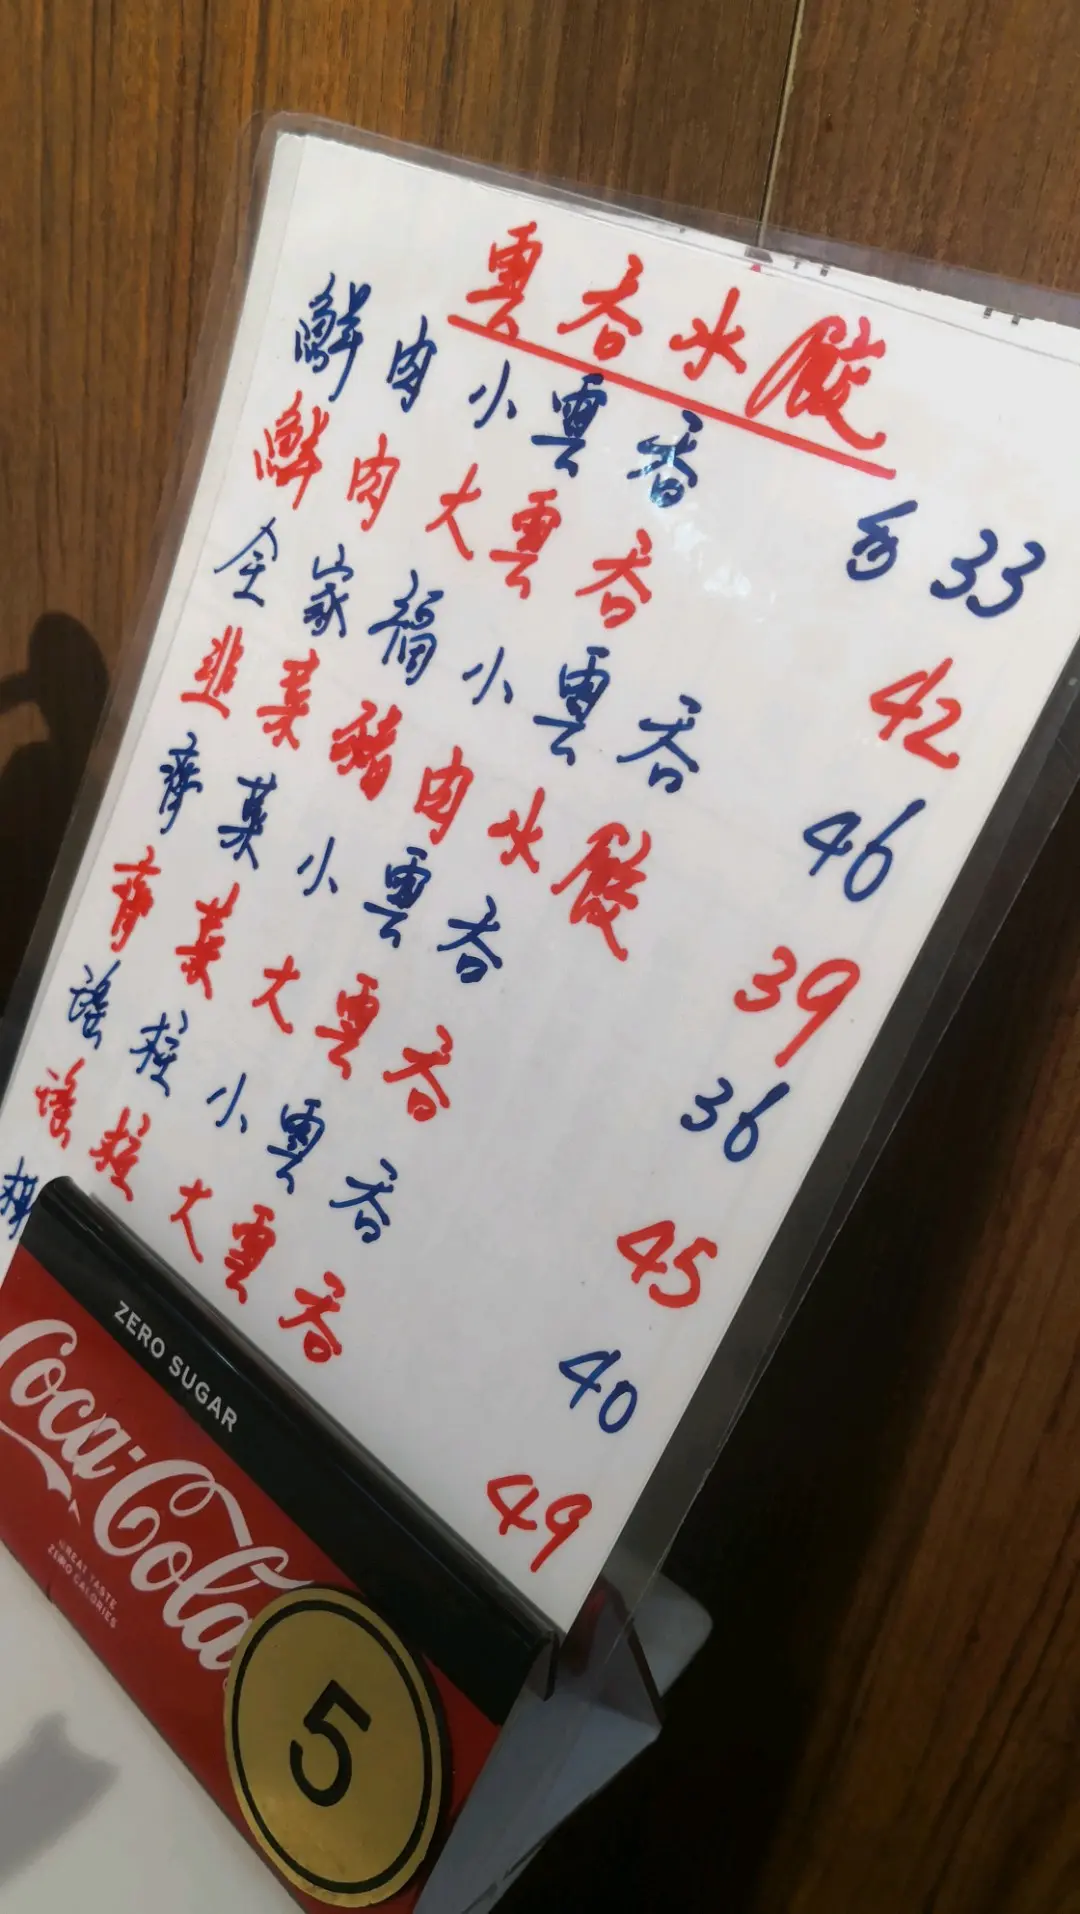 雲吞水餃
鮮肉小雲吞 33
鮮肉大雲吞 42
全家福小雲吞 46
韭菜豬肉水餃 39
齊菜小雲吞 36
齊菜大雲吞 45
瑤柱小雲吞 40
瑤柱大雲吞 49
ZERO SUGAR
Coca-Cola
GREAT TASTE
ZERO CALORIES
5